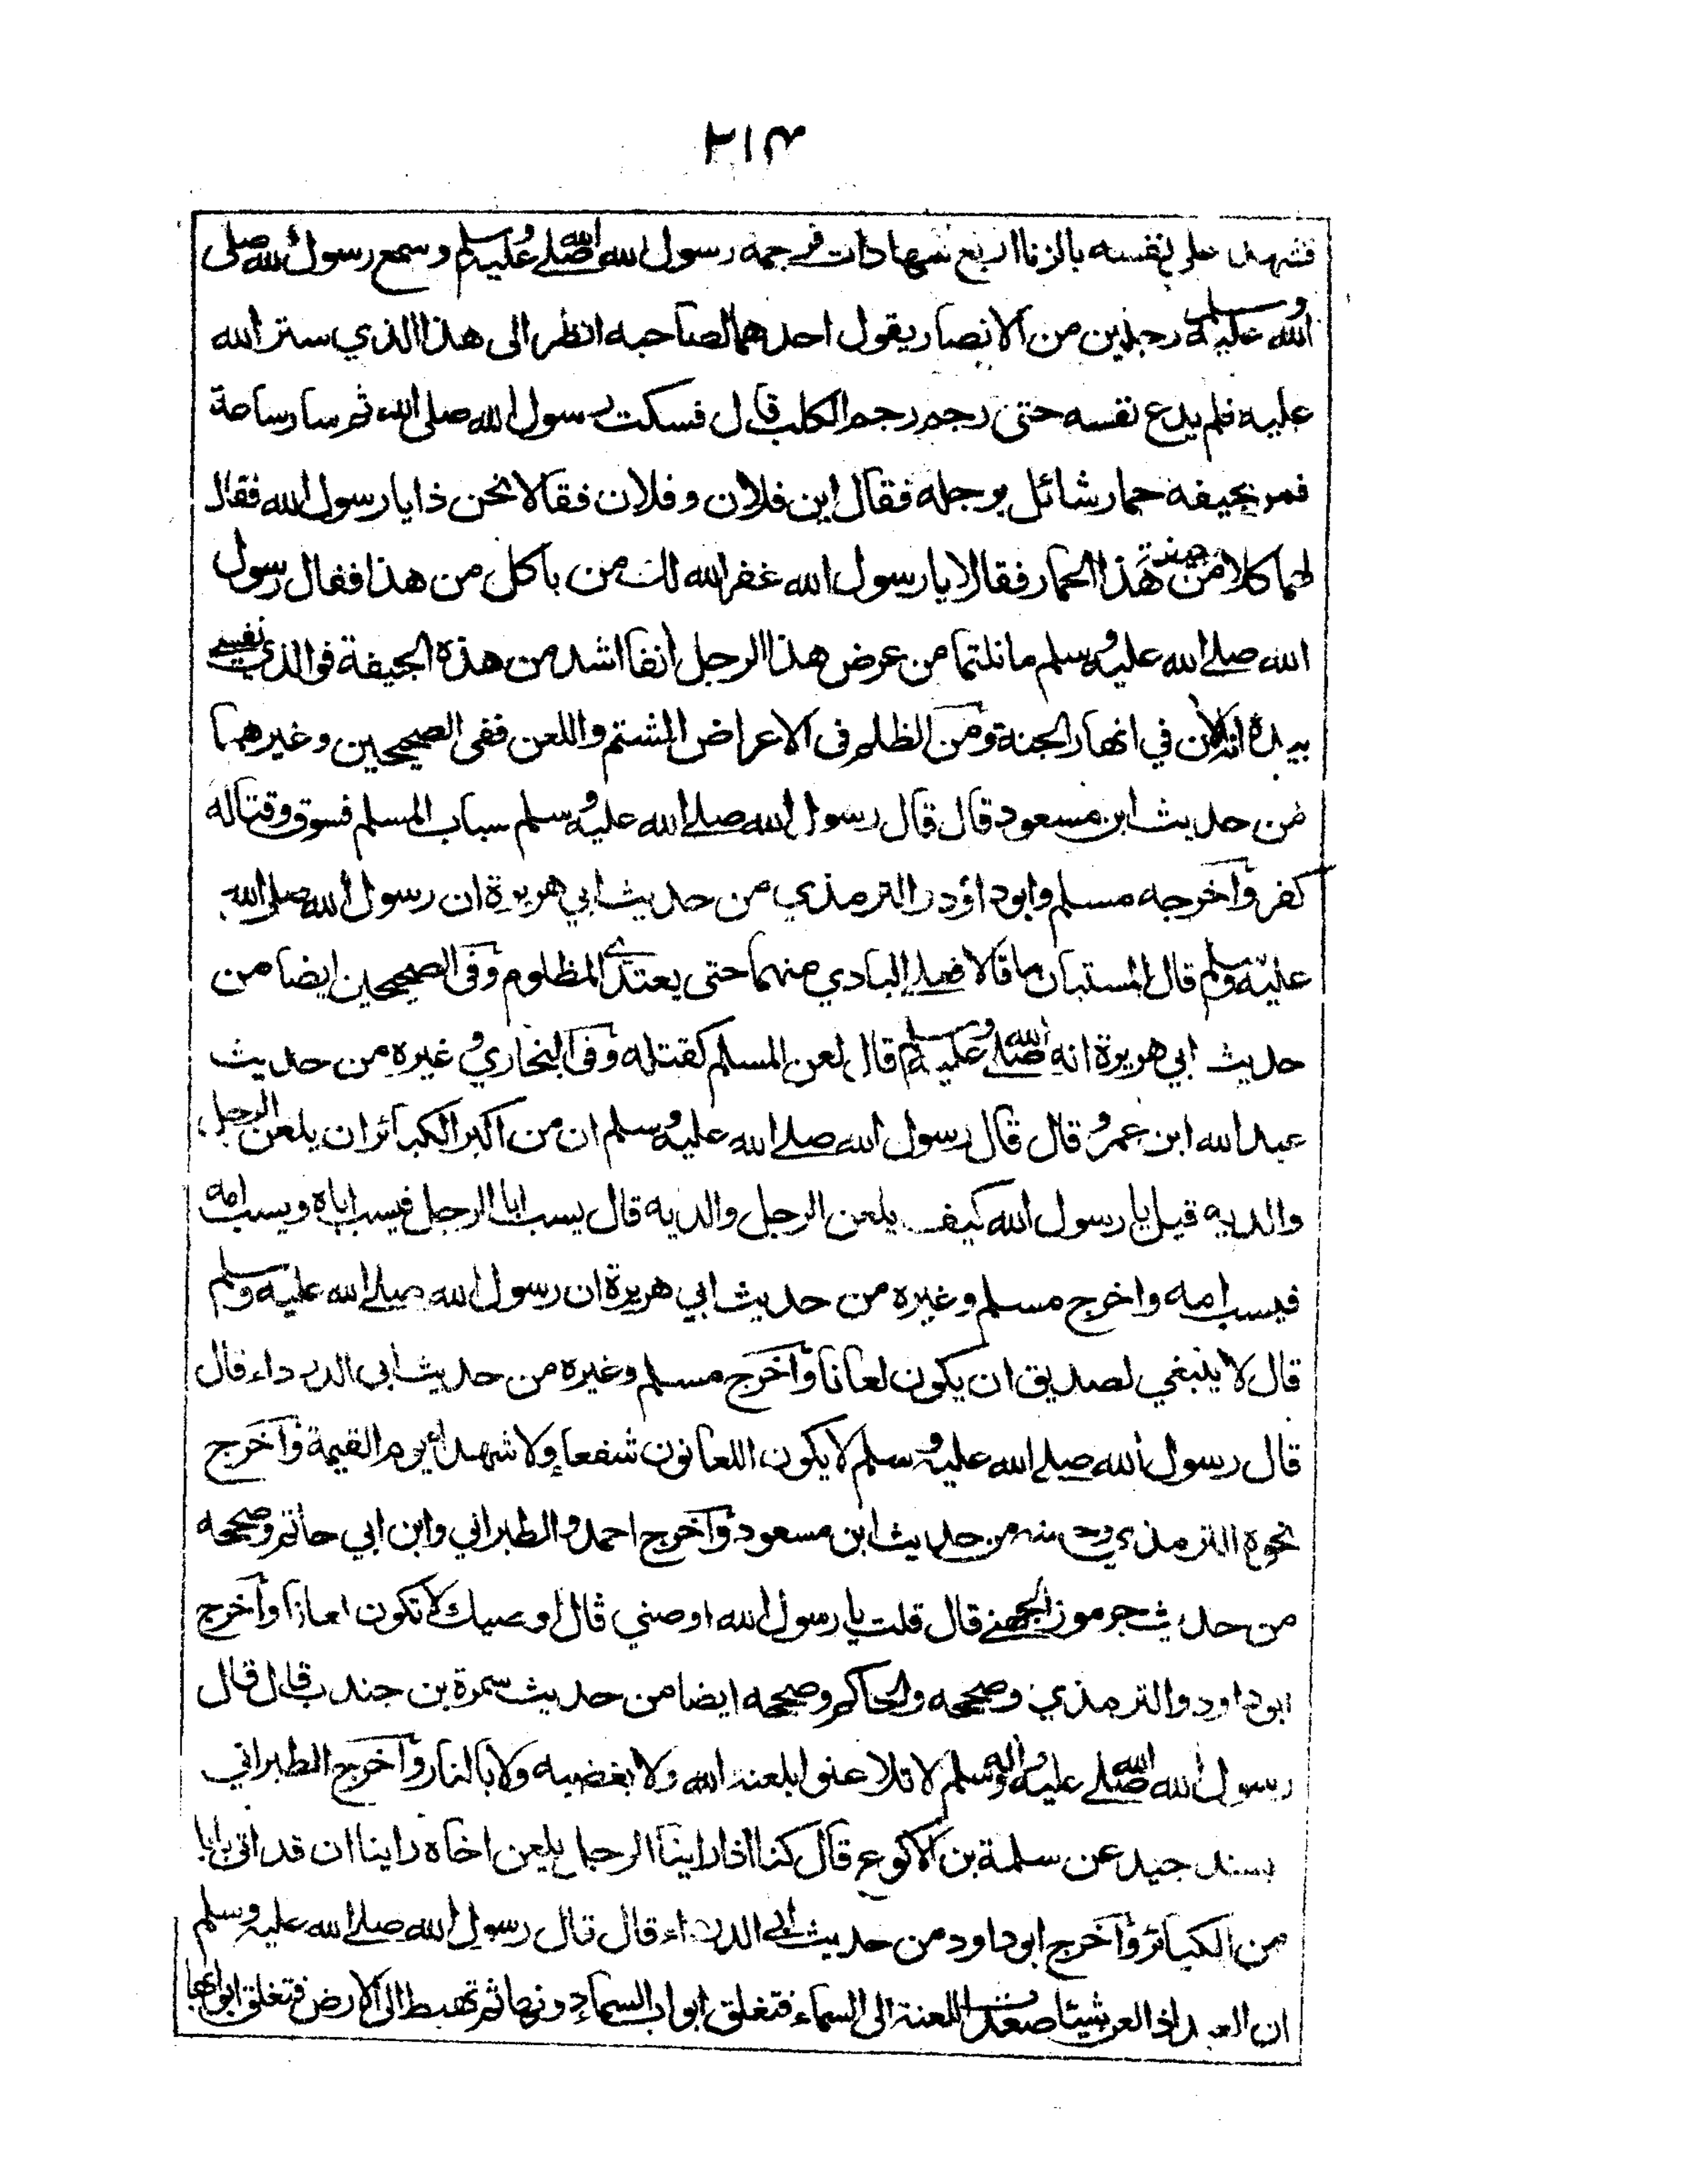 ٢١٣
فشهد على نفسه بالزنا اربع شهادات فرجمه رسول الله صلى الله عليه وسلم وسمع رسول الله صلى
الله عليه وسلم رجلين من الانصار يقول احدهما لصاحبه انظر الى هذا الذي ستر الله
عليه فلم يدع نفسه حتى رجم رجم الكلب قال فسكت رسول الله صلى الله ثم سار ساعة
فمر بجيفة حمار شائل برجله فقال اين فلان وفلان فقالا نحن ذا يا رسول الله فقال
لهما كلا من جيفة هذا الحمار فقالا يا رسول الله غفر الله لك من ياكل من هذا فقال رسول
الله صلے الله عليه وسلم ما نلتما من عرض هذا الرجل انفا اشد من هذه الجيفة فوالذي نفسي
بيده انه الان في انهار الجنة ومن الظلم فى الاعراض الشتم واللعن ففى الصحيحين وغيرهما
من حديث ابن مسعود قال قال رسول الله صلے الله عليه وسلم سباب المسلم فسوق وقتاله
كفر وأخرجه مسلم وابو داؤد والترمذي من حديث ابي هريرة ان رسول الله صلى الله
عليه وسلم قال المستبان ما قالا فعلى البادي منهما حتى يعتدى المظلوم وفى الصحيحين ايضا من
حديث ابي هريرة انه صلے الله عليه وسلم قال لعن المسلم كقتله وفى البخاري وغيره من حديث
عبد الله ابن عمرو قال قال رسول الله صلے الله عليه وسلم ان من اكبر الكبائر ان يلعن الرجل
والديه قيل يا رسول الله كيف يلعن الرجل والديه قال يسب ابا الرجل فيسب اباه ويسب امه
فيسب امه واخرج مسلم وغيره من حديث ابي هريرة ان رسول الله صلے الله عليه وسلم
قال لا ينبغي لصديق ان يكون لعانا وأخرج مسلم وغيره من حديث ابى الدرداء قال
قال رسول الله صلے الله عليه وسلم لا يكون اللعانون شفعاء ولا شهداء يوم القيمة وأخرج
نحوه الترمذي وحسنه من حديث ابن مسعود وأخرج احمد والطبراني وابن ابي حاتم وصححه
من حديث جرموز الجهنے قال قلت يا رسول الله اوصني قال اوصيك لا تكون لعانا وأخرج
ابو داود والترمذي وصححه والحاكم وصححه ايضا من حديث سمرة بن جندب قال قال
رسول الله صلے الله عليه واله وسلم لا تلاعنوا بلعنة الله ولا بغضبه ولا بالنار وأخرج الطبراني
بسند جيد عن سلمة بن الاكوع قال كنا اذا راينا الرجل يلعن اخاه راينا ان قد اتى بابا
من الكبائر وأخرج ابو داود من حديث ابى الدرداء قال قال رسول الله صلے الله عليه وسلم
ان العبد اذا لعن شيئا صعدت اللعنة الى السماء فتغلق ابواب السماء دونها ثم تهبط الى الارض فتغلق ابوابها